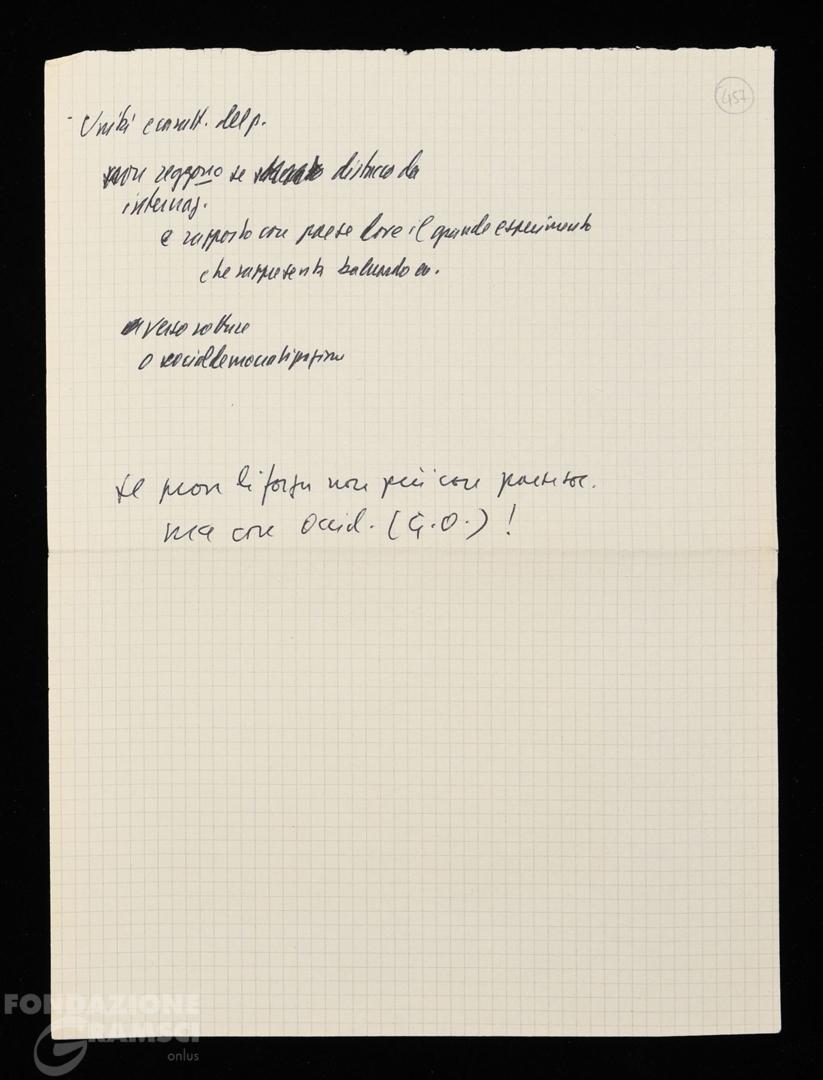 457
- Unità e caratt. del p.
non reggono se distacco da
internaz.
e rapporto con paese dove il grande esperimento
che rappresenta
verso rotture
o socialdemocratizzazione
se non li forza non più con paesi soc.
ma con Occid. (G.O.)!
FONDAZIONE
GRAMSCI
onlus